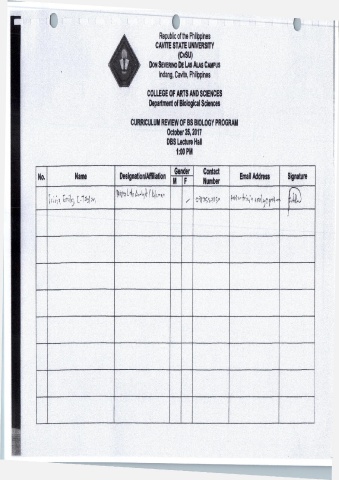 Republic of the Philippines
CAVITE STATE UNIVERSITY
(CvSU)
DON SEVERINO DE LAS ALAS CAMPUS
Indang, Cavite, Philippines
COLLEGE OF ARTS AND SCIENCES
Department of Biological Sciences
CURRICULUM REVIEW OF BS BIOLOGY PROGRAM
October 25, 2017
DBS Lecture Hall
1:00 PM
No. Name Designation/Affiliation Gender Contact Number Email Address Signature
M F